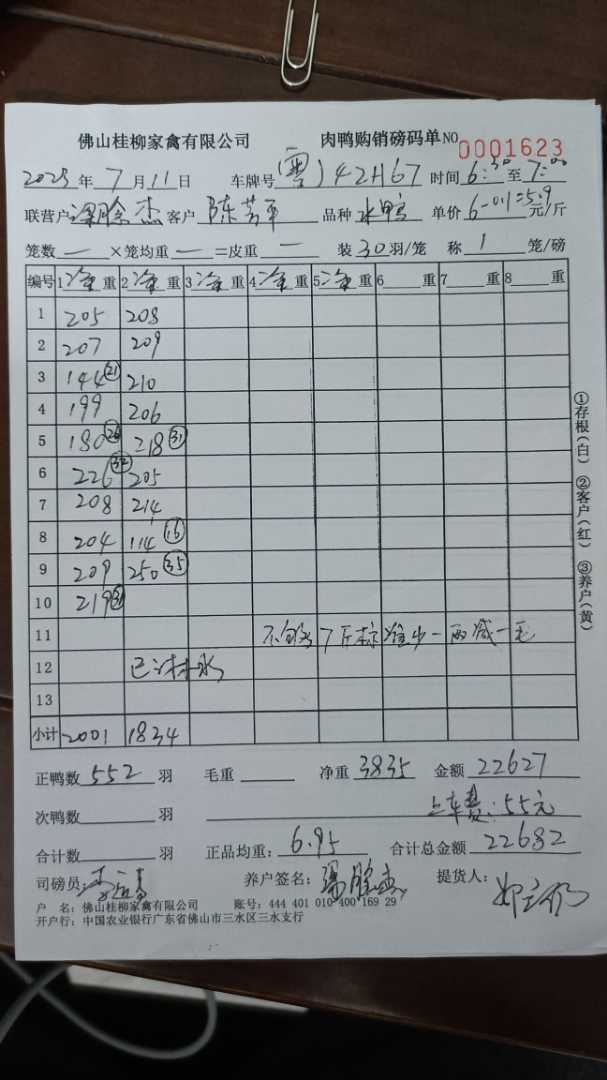 佛山桂柳家禽有限公司 肉鸭购销磅码单 NO 0001623
2025年7月11日 车牌号(粤)42H67 时间6:30至7:00
联营户梁脍杰 客户陈芳平 品种水鸭 单价6-0.1=5.9元/斤
笼数一×笼均重一=皮重一 装30羽/笼 称1笼/磅
编号 1净重 2净重 3净重 4净重 5净重 6 重 7 重 8 重
1 205 208
2 207 209
3 144㉑ 210
4 199 206
5 180㉖ 218㉛
6 226㉜ 205
7 208 214
8 204 114⑯
9 209 250㉟
10 219㉛
11 不够7斤标准少一两减一毛
12 已 水
13
小计 2001 1834
正鸭数552羽 毛重 净重3835 金额22627
次鸭数 羽 上车费:55元
合计数 羽 正品均重:6.95 合计总金额22682
司磅员: 养户签名: 提货人:
户 名:佛山桂柳家禽有限公司 账号:444 401 010 400 169 29
开户行:中国农业银行广东省佛山市三水区三水支行
①存根(白) ②客户(红) ③养户(黄)